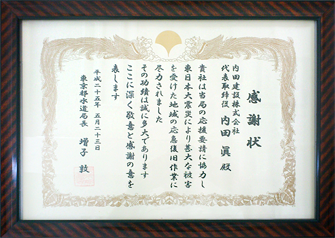 感謝状
内田建設株式会社
代表取締役 内田 眞 殿
貴社は当局の応援要請に協力し
東日本大震災により甚大な被害
を受けた地域の応急復旧作業に
尽力されました
その功績は誠に多大であります
ここに深く敬意と感謝の意を
表します
平成二十五年 五月二十三日
東京都水道局長 増子 敦